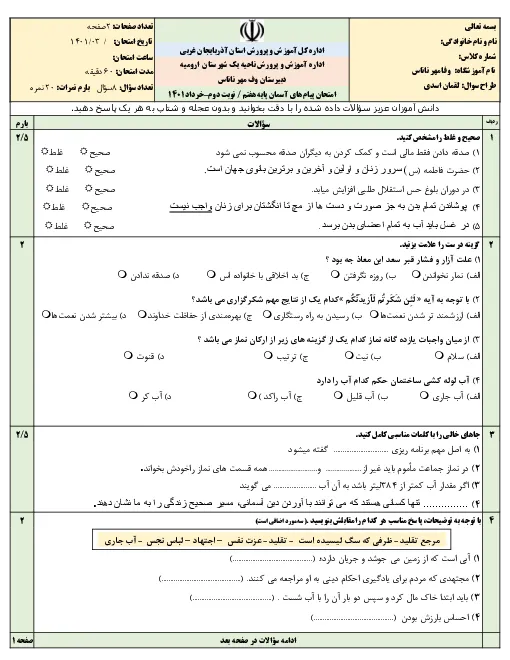 بسمه تعالی
نام و نام خانوادگی:
شماره کلاس:
نام آموزشگاه: وقامهر ناناس
طراح سوال: لقمان اسدی
اداره کل آموزش و پرورش استان آذربایجان غربی
اداره آموزش و پرورش ناحیه یک شهرستان ارومیه
دبیرستان وقف مهر ناناس
امتحان پیام های آسمان پایه هفتم / نوبت دوم-خرداد۱۴۰۱
تعداد صفحات: ۲صفحه
تاریخ امتحان: / ۱۴۰۱/۰۳
ساعت امتحان:
مدت امتحان: ۶۰ دقیقه
تعداد سؤال: ۸سؤال بارم نمرات: ۲۰ نمره
دانش آموزان عزیز سؤالات داده شده را با دقت بخوانید و بدون عجله و شتاب به هر یک پاسخ دهید.
ردیف سؤالات بارم
۱ صحیح و غلط را مشخص کنید. ۲/۵
۱) صدقه دادن فقط مالی است و کمک کردن به دیگران صدقه محسوب نمی شود صحیح غلط
۲) حضرت فاطمه (س) سرور زنان و اولین و آخرین و برترین بلوی جهان است. صحیح غلط
۳) در دوران بلوغ حس استقلال طلبی افزایش میابد. صحیح غلط
۴) پوشاندن تمام بدن به جز صورت و دست ها از مچ تا انگشتان برای زنان واجب نیست صحیح غلط
۵) در غسل باید آب به تمام اعضای بدن برسد. صحیح غلط
۲ گزینه درست را علامت بزنید. ۲
۱) علت آزار و فشار قبر سعد ابن معاذ چه بود ؟
الف) نماز نخواندن ب) روزه نگرفتن ج) بد اخلاقی با خانواده اش د) صدقه ندادن
۲) با توجه به آیه « لَئِن شَکَرتُم لَأَزیدَنَّکُم »کدام یک از نتایج مهم شکرگزاری می باشد؟
الف) ارزشمند تر شدن نعمت‌ها ب) رسیدن به راه رستگاری ج) بهره‌مندی از حفاظت خداوند د) بیشتر شدن نعمت‌ها
۳) از میان واجبات یازده گانه نماز کدام یک از گزینه های زیر از ارکان نماز می باشد ؟
الف) سلام ب) نیت ج) ترتیب د) قنوت
۴) آب لوله کشی ساختمان حکم کدام آب را دارد
الف) آب جاری ب) آب قلیل ج) آب راکد ) د) آب کر
۳ جاهای خالی را با کلمات مناسبی کامل کنید. ۲/۵
۱) به اصل مهم برنامه ریزی .......................... گفته میشود
۲) در نماز جماعت مأموم باید غیر از................. و........................ همه قسمت های نماز راخودش بخواند.
۳) اگر مقدار آب کمتر از ۳۸۴لیتر باشد به آن آب .................... می گویند
۴) ............... تنها کسانی هستند که می توانند با آوردن دین آسمانی، مسیر صحیح زندگی را به ما نشان دهند.
۴ با توجه به توضیحات، پاسخ مناسب هر کدام را مقابلش بنویسید .( سه مورد اضافی است) ۲
مرجع تقلید- ظرفی که سگ لیسیده است - تقلید- عزت نفس – اجتهاد – لباس نجس - آب جاری
۱) آبی است که از زمین می جوشد و جریان دارد» (.....................................)
۲) مجتهدی که مردم برای یادگیری احکام دینی به او مراجعه می کنند. (.....................................)
۳) باید ابتدا خاک مال کرد و سپس دو بار آن را با آب شست . (.....................................)
۴) احساس بارزش بودن (.....................................)
ادامه سؤالات در صفحه بعد صفحه ۱